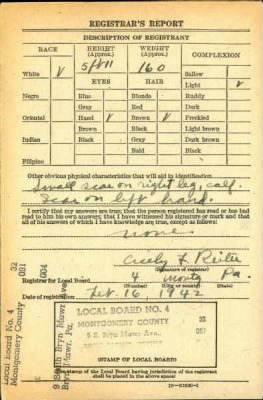 REGISTRAR'S REPORT
DESCRIPTION OF REGISTRANT
RACE
HEIGHT (Approx.)
WEIGHT (Approx.)
COMPLEXION
5 ft 11
160
Sallow
White ✓
EYES
HAIR
Light ✓
Negro
Blue
Blonde
Ruddy
Gray
Red
Dark
Oriental
Hazel ✓
Brown ✓
Freckled
Brown
Black
Light brown
Indian
Black
Gray
Dark brown
Bald
Black
Filipino
Other obvious physical characteristics that will aid in identification
Small scar on right leg, calf.
Scar on left hand.
I certify that my answers are true; that the person registered has read or has had
read to him his own answers; that I have witnessed his signature or mark and that
all of his answers of which I have knowledge are true, except as follows:
none
(Signature of registrar)
Registrar for Local Board 4 Montg Pa.
Date of registration Feb. 16, 1942
LOCAL BOARD NO. 4
MONTGOMERY COUNTY
9 S. Bryn Mawr Ave.,
STAMP OF LOCAL BOARD
The stamp of the Local Board having jurisdiction of the registrant
shall be placed in the above space
Local Board No. 4
Montgomery County
32
091
004
9 South Bryn Mawr Ave
Bryn Mawr, Pa.